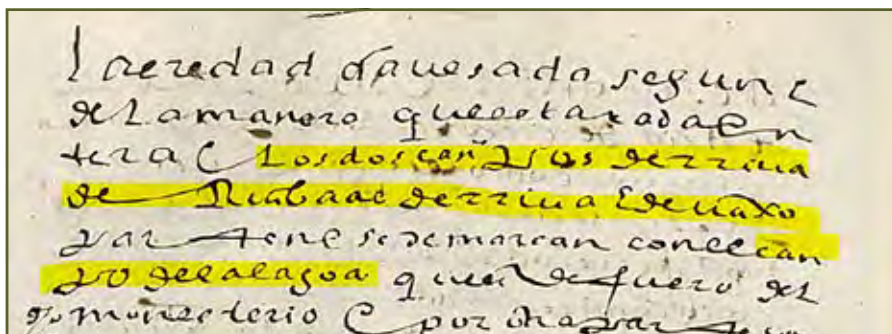 laeredad dauesada segun e
de la manera que esta xada en
tera e los dos cañ yzos derriua
de Riabaac derriua E de uaxo
par tene se demarcan con el can
yzo de la lagoa que es de fuero del
monesterio E por otra par te